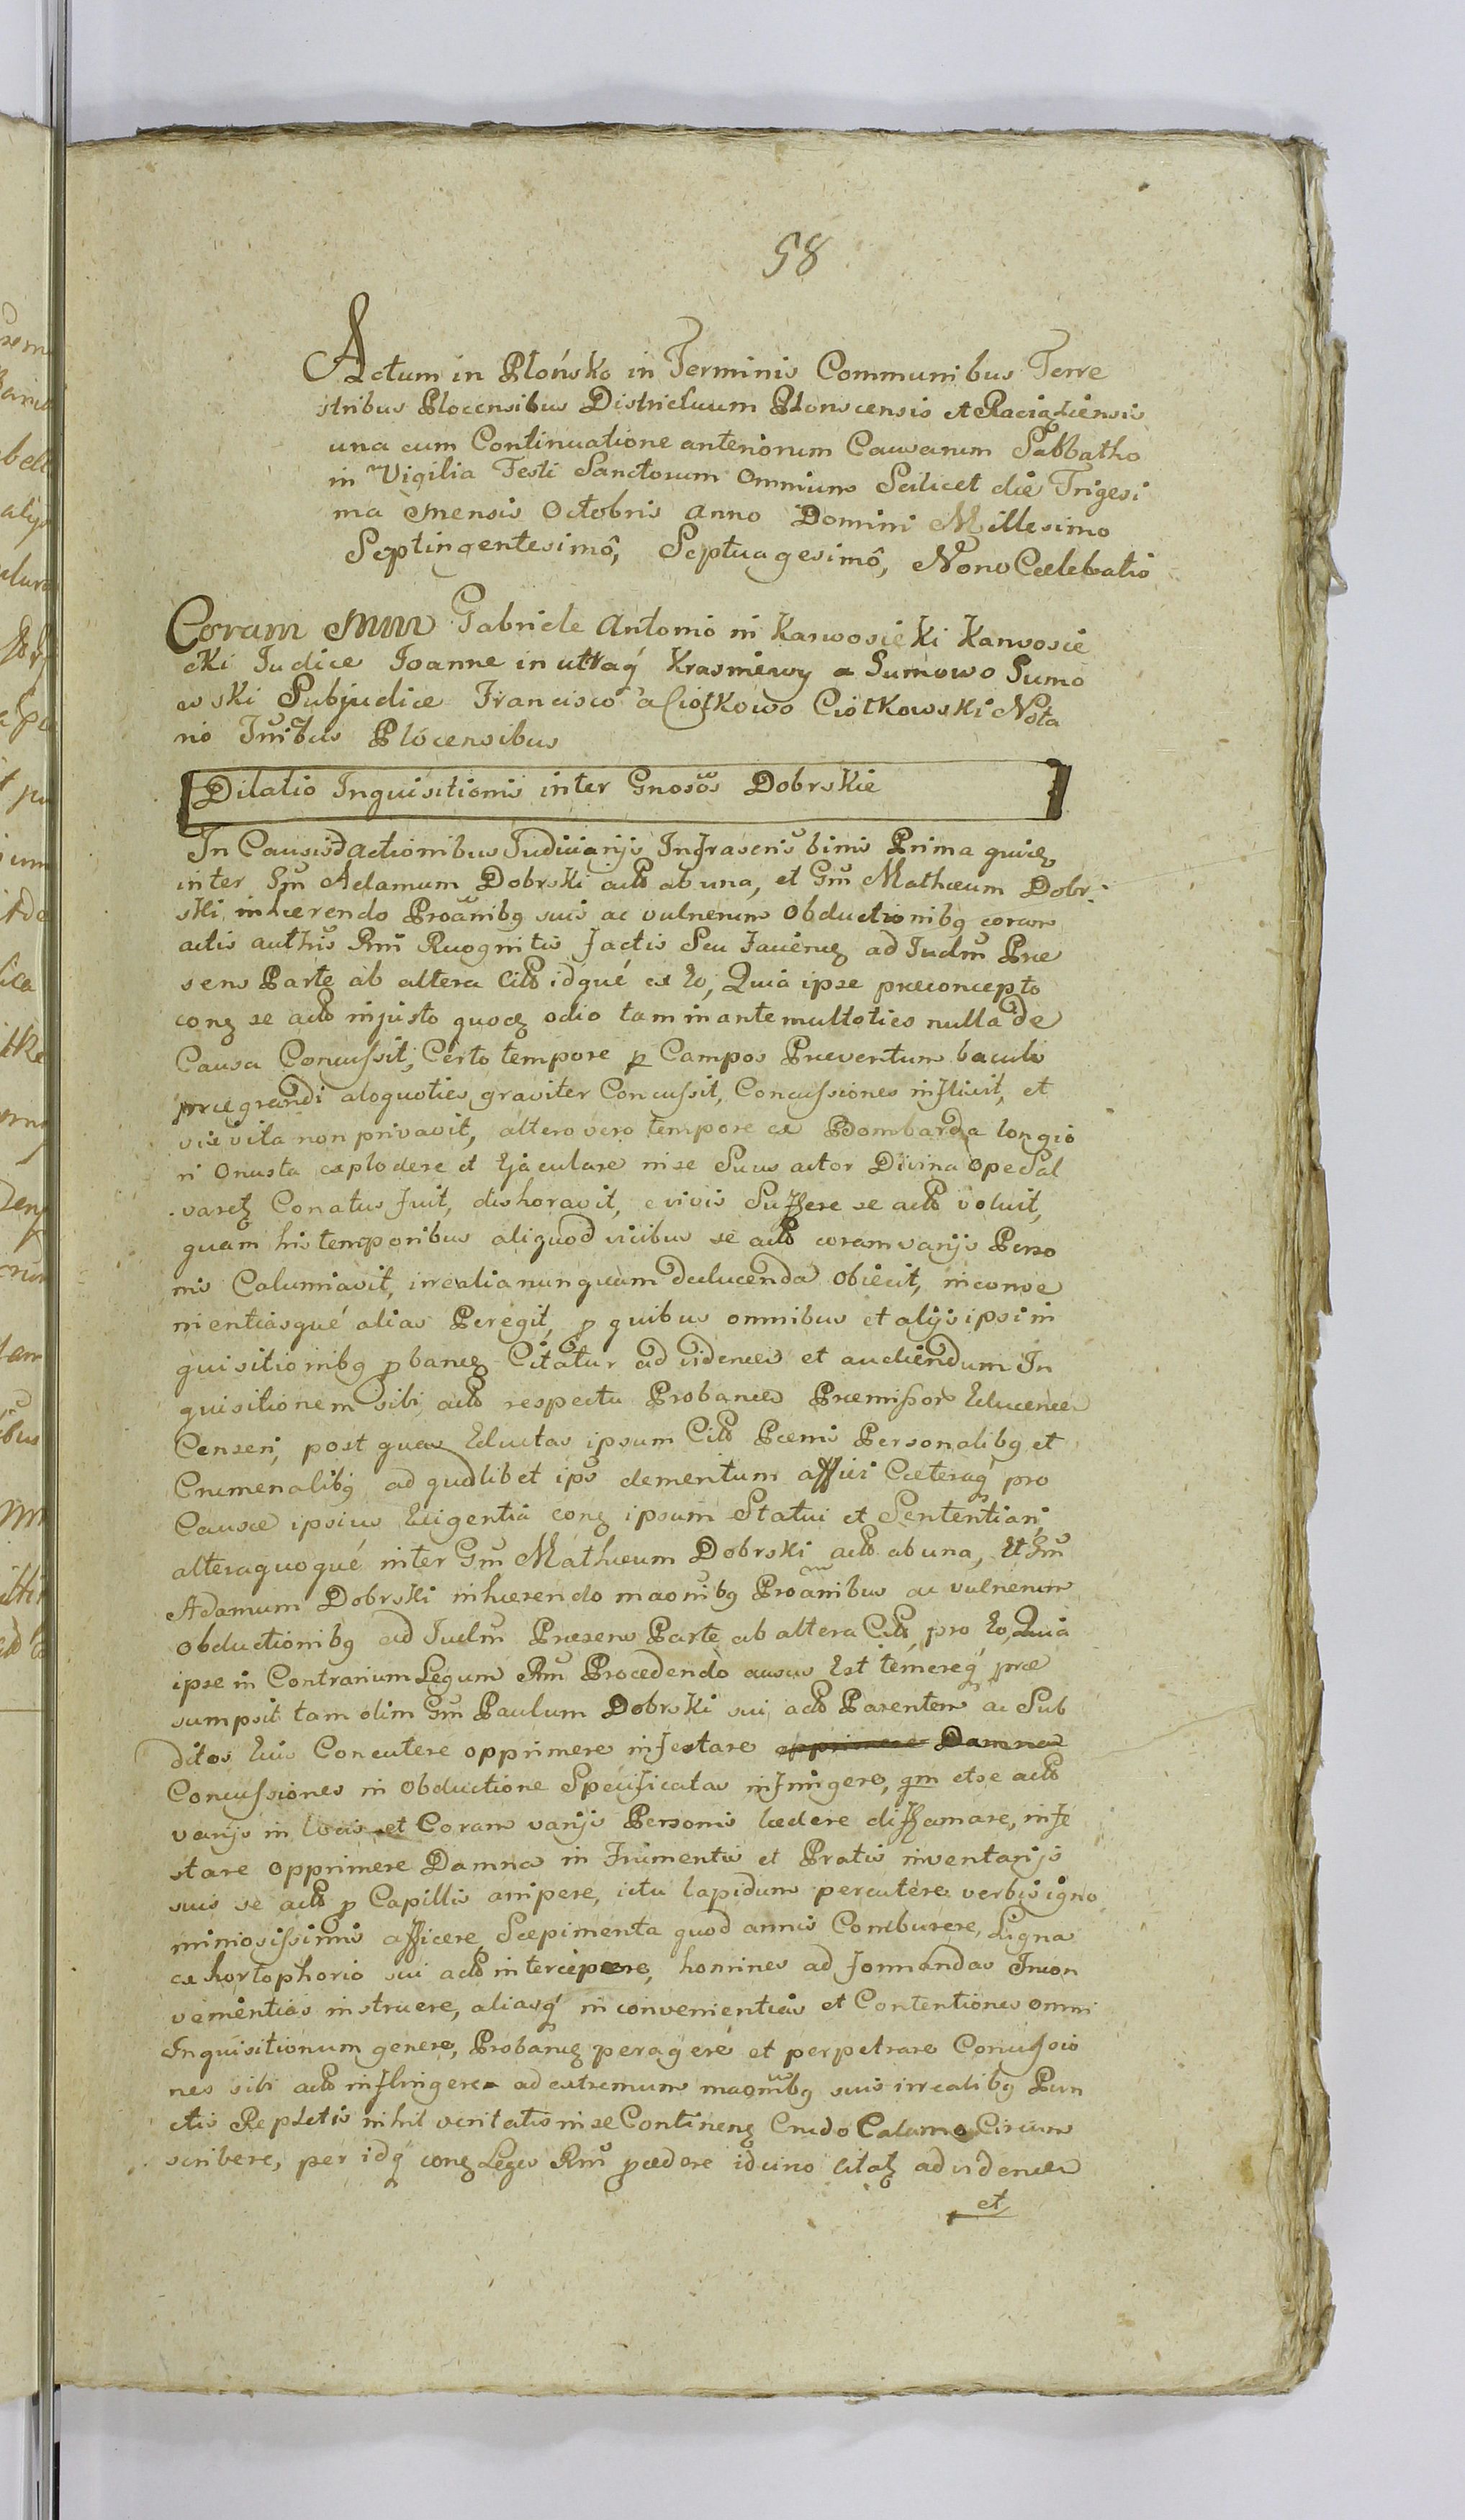 58
Actum in Płońsko in Terminis Communibus Terre
stribus Plocensibus Districtuum Plonscensis et Raciążiensis
una cum Continuatione anteriorum Causarum Sabbatho
in Vigilia Festi Sanctorum Omnium Scilicet die Trigesi
ma mensis Octobris Anno Domini Millesimo
Septingentesimô, Septuagesimô, Nono Celebratis
Coram MM Gabriele Antonio in Karwosieki Karwosie
cki Iudice Ioanne in utraq́ Krasniewy a Sumowo Sumo
wski Subjudice Francisco a Ciołkowo Ciołkowski Nota
rio Tribus Plocensibus
Dilatio Inquisitionis inter Gnosos Dobrskie
In Causis d actionibus Iudiciarijs Infrascris binis Prima quidę
inter Gm Adamum Dobrski acto ab una, et Gm Mathæum Dobr
ski inhærendo Proanibq suis ac vulnerum obductionibq coram
actis authis Rni Recognitis factis Seu faciendę ad Iudm Præ
sens Parte ab altera Citto idqué ex Eo, Quia ipse præconcepto
conę se acto injusto quoqę odio tam in ante multoties nulla de
Causa Concussit, Certo tempore p Campos Preventum baculo
prægrandi aloquoties graviter Concussit, Concussiones inflixit, et
vix vita non privavit, altero vero tempore ex Bombarda longio
ri Onusta explodere et Ejaculare nise Suus actor Divina Ope Sal
varetę Conatus fuit, dishoravit, e vivis Sufferre se acto voluit,
quam his temporibus aliquod vicibus se acto coram varijs Perso
nis Calumniavit, irrealia nunquam deducenda Obiecit, inconve
nientiasqué alias Peregit, p quibus omnibus et alijs ipsi in
quisitionibq pbandę Citatur ad videndum et audiendum In
quisitionem sibi acto respectu Probandor Præmissor Educendam
Censeri, post quas Eductas ipsum Citto Pœnis Personalibq et
Criminalibq ad quodlibet ips dementum affici Cæteraq́ pro
Causæ ipsius Exigentia conę ipsum Statui et Sententiari,
altera quoqué inter Gm Mathæum Dobrski acto ab una, Et Gm
Adamum Dobrski inhærendo maonibq Proanibus ac vulnerum
obductionibq ad Iudm Præsens Parte ab altera Citto, pro Eo, Quia
ipse in Contrarium Legum Rni Procedendo ausus Est temereq́ præ
sumpsit tam olim Gm Paulum Dobrski sui acto Parentem ac Sub
ditos Eius Concutere opprimere infestare opprimere Damna
Concussiones in Obductione Specificatas infringere, qm et se acto
varijs in locis et Coram varijs Personis lædere diffamare, infe
stare opprimere Damna in Frumentis et Pratis inventarijs
suis se acto p Capillis arripere, ictu lapidum percutere verbis igno
miniosissimis afficere Sæpimenta quod annis Comburere, Ligna
ex hortophorio sui acto intercipere, homines ad formandas Incon
venientias instruere, aliasq́ inconvenientias et Contentiones omni
Inquisitionum genere, Probandę peragere et perpetrare Concussio
nes sibi acto inflingere ad extremum maonibq suis irrealibq Pun
ctis Repletis nihil veritatis in se Continenę Crudo Calamo Circum
scribere, per idq́ conę Leges Rni pcedere idcirco citatę ad videndum
et